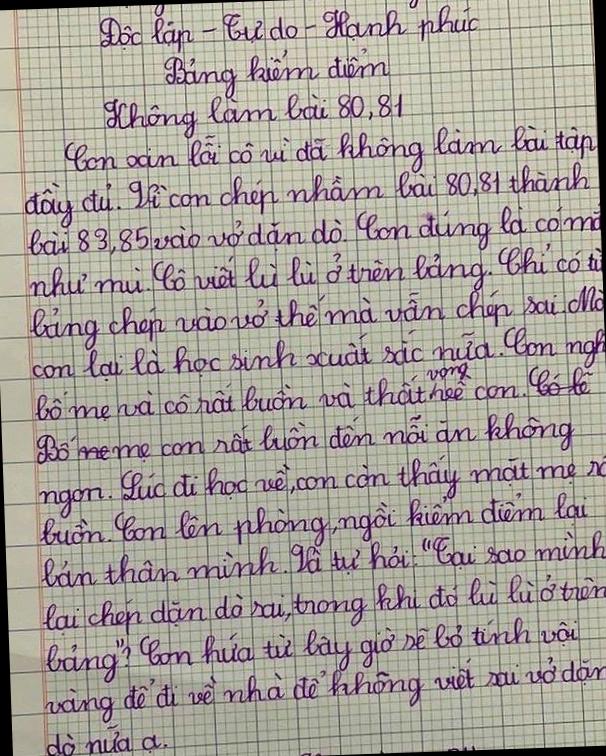 Độc lập - Tự do - Hạnh phúc
Bảng kiểm điểm
Không làm bài 80,81
Con xin lỗi cô vì đã không làm bài tập
đầy đủ. Vì con chép nhầm bài 80,81 thành
bài 83,85 vào vở dặn dò. Con đúng là có mắ
như mù. Cô viết lù lù ở trên bảng. Chỉ có từ
bảng chép vào vở thế mà vẫn chép sai. Mà
con lại là học sinh xuất sắc nữa. Con ngh
bố mẹ và cô rất buồn và thất vọng về con. Có lẽ
Bố me mẹ con rất buồn đến nỗi ăn không
ngon. Lúc đi học về, con còn thấy mặt mẹ r
buồn. Con lên phòng, ngồi kiểm điểm lại
bản thân mình. Và tự hỏi: "Tại sao mình
lại chép dặn dò sai, trong khi đó lù lù ở trên
bảng"? Con hứa từ bây giờ sẽ bỏ tính vội
vàng để đi về nhà để không viết sai vở dặn
dò nữa ạ.